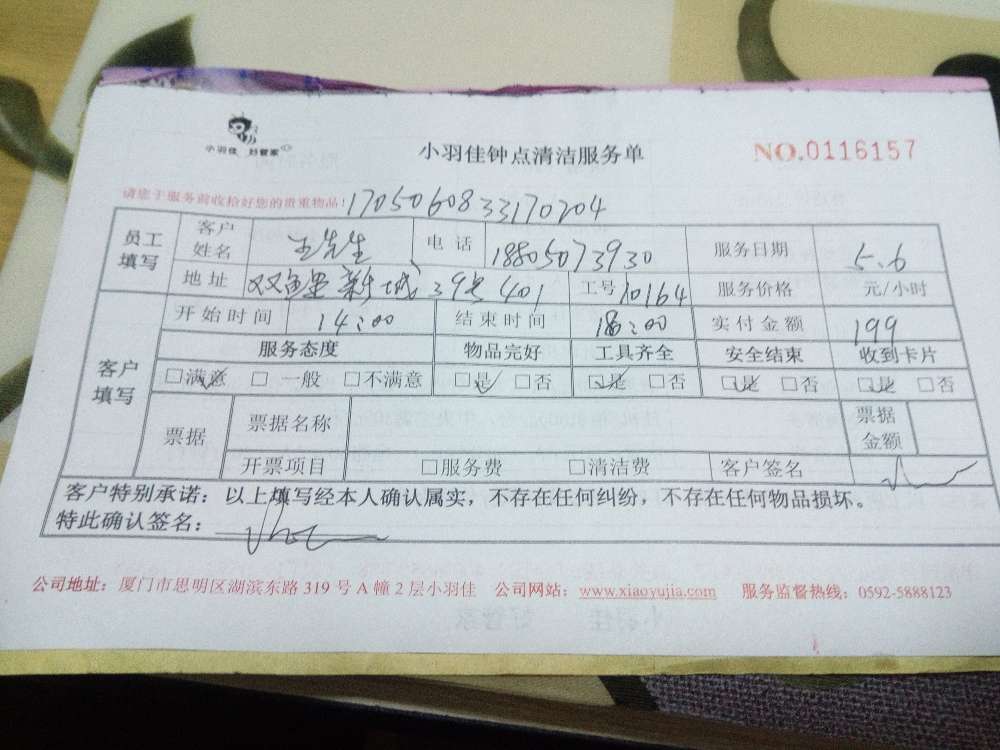 小羽佳 好管家
小羽佳钟点清洁服务单
NO.0116157
请您于服务前收检好您的贵重物品!
1705060833170204
员工填写 客户姓名 王先生 电话 18805073930 服务日期 5.6
地址 双鱼星新城39号401 工号 10164 服务价格 元/小时
客户填写 开始时间 14:00 结束时间 18:00 实付金额 199
服务态度 物品完好 工具齐全 安全结束 收到卡片
□满意 □一般 □不满意 □是 □否 □是 □否 □是 □否 □是 □否
票据 票据名称 票据金额
开票项目 □服务费 □清洁费 客户签名
客户特别承诺：以上填写经本人确认属实，不存在任何纠纷，不存在任何物品损坏。
特此确认签名：
公司地址：厦门市思明区湖滨东路 319 号 A 幢 2 层小羽佳 公司网站：www.xiaoyujia.com 服务监督热线：0592-5888123